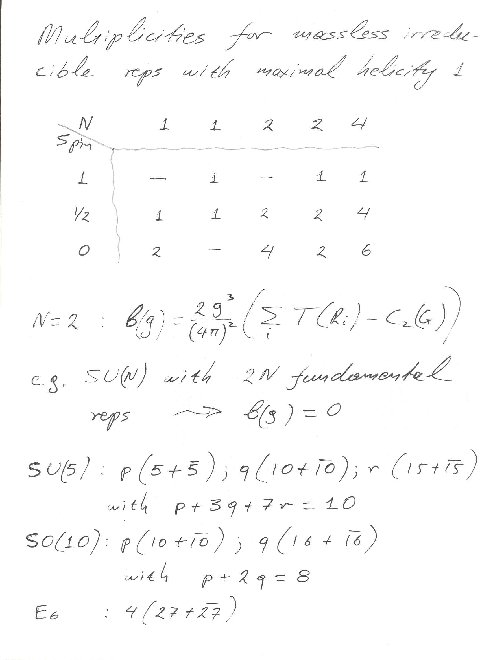 Multiplicities for massless irredu-
cible reps with maximal helicity 1
N 1 1 2 2 4
Spin
1 — 1 — 1 1
1/2 1 1 2 2 4
0 2 - 4 2 6
N=2 : β(g) = 2g³/(4π)² (Σᵢ T(Rᵢ) - C₂(G))
e.g. SU(N) with 2N fundamental
reps ⟶ β(g) = 0
SU(5) : p(5+5̄) ; q(10+1̄0̄) ; r(15+1̄5̄)
with p+3q+7r = 10
SO(10) : p(10+1̄0̄) ; q(16+1̄6̄)
with p+2q = 8
E₆ : 4(27+2̄7̄)